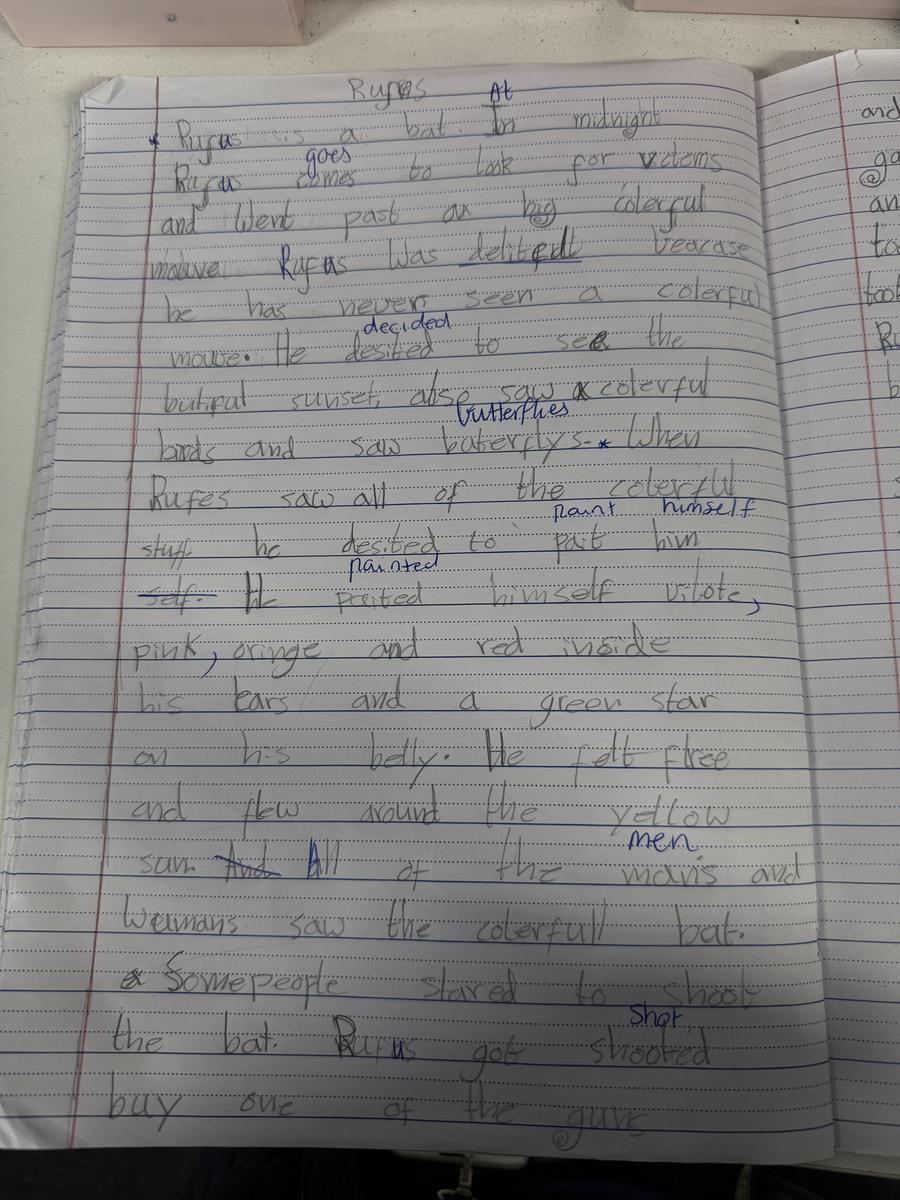 Rufus
At
* Rufus is a bat. In midnight
goes
Rufus comes to look for victems
and went past an big colerful
mouve. Rufus was delitedt beacase
he has never seen a colerful
decided
mouve. He desited to see the
butiful sunset, also saw colerful
butterflies
birds and saw buterflys. * When
Rufes saw all of the colerful
paint himself
stuff he desited to pait him
painted
self. He paited himself vilote,
pink, oringe and red inside
his ears and a green star
on his belly. He felt free
and flew around the yellow
men
sun. And All of the mans and
Wemans saw the colerfull bat.
Some people stared to shoot
Shot
the bat. Rufus got shooted
buy one of the guns
and